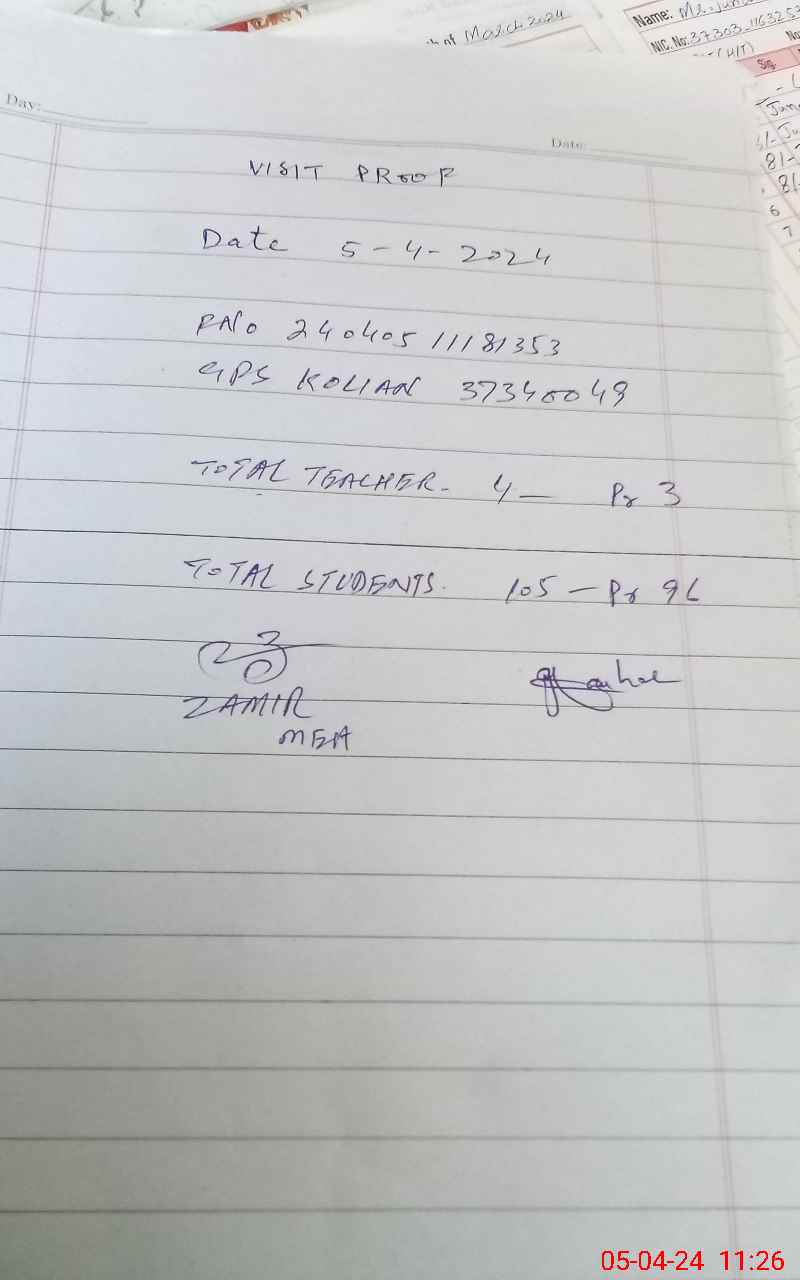 of March 2024
Name: Mr.
NIC. No: 37303
Sig.
Day:
Date:
VISIT PROOF
Date 5-4-2024
RNo 24040511181353
GPS KOLIAN 37340049
TOTAL TEACHER- 4 — Pr 3
TOTAL STUDENTS. 105 — Pr 96
ZAMIR
MEA
05-04-24 11:26